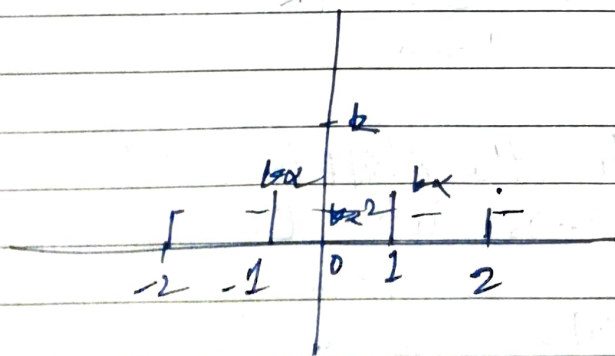 k
kα kα
kα²
-2 -1 0 1 2